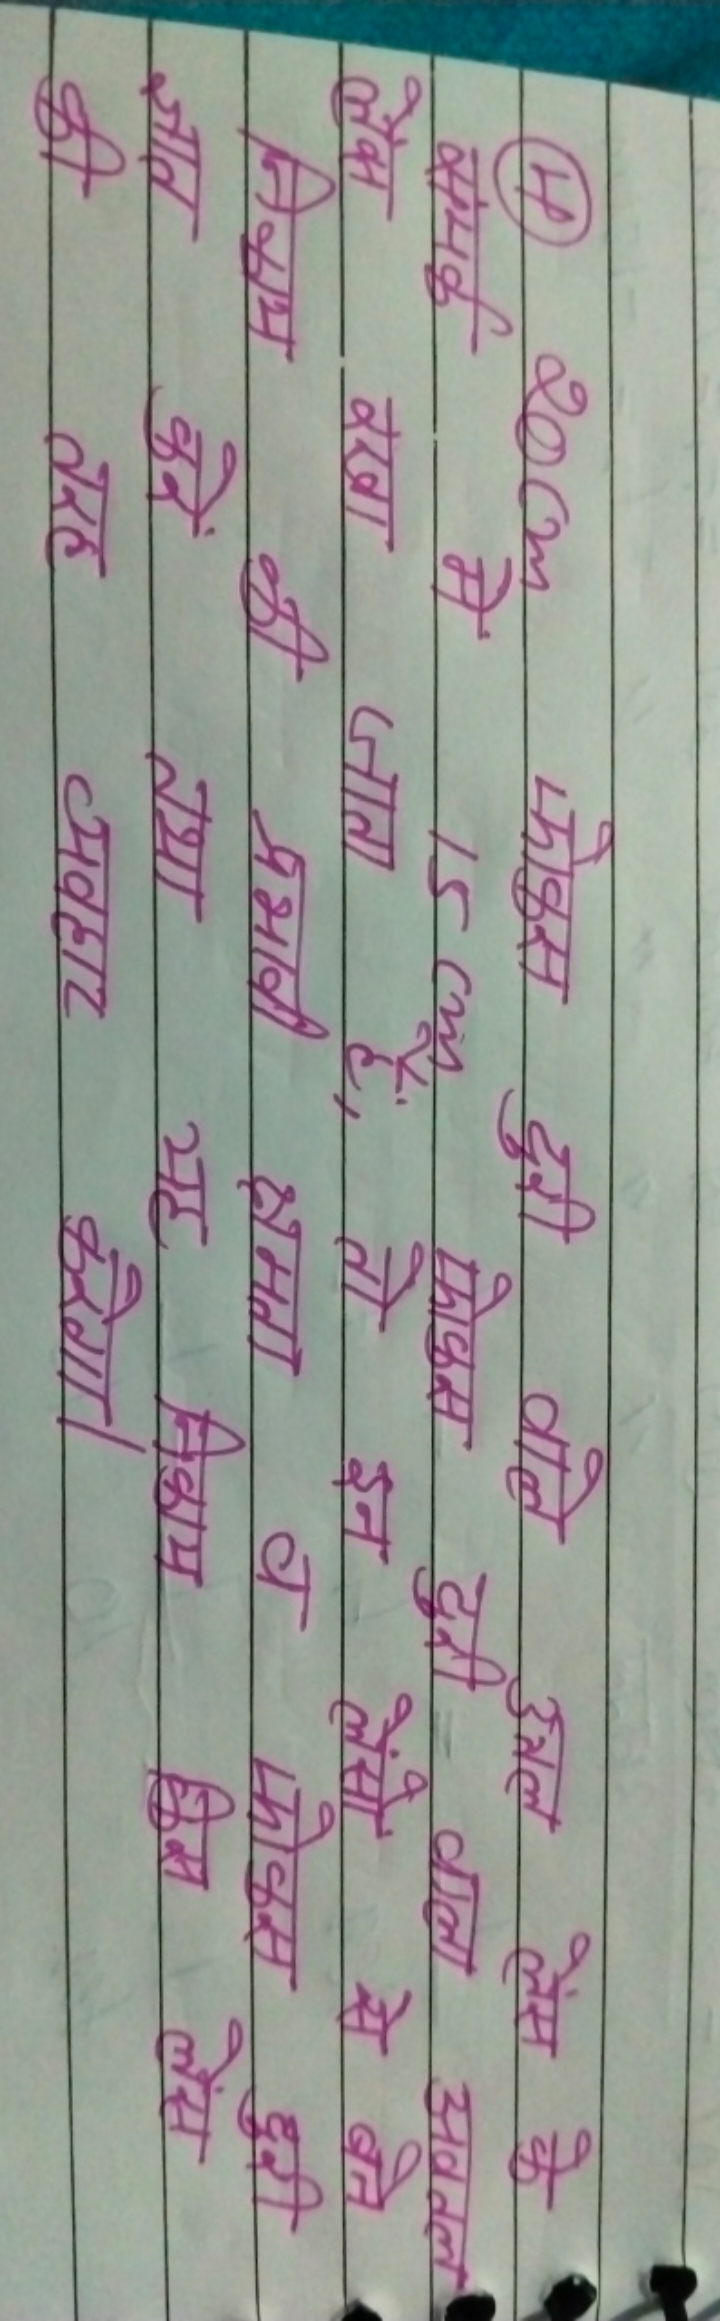 (4) 20cm फोकस दुरी वाले उत्तल लेंस के
संपर्क में 15cm फोकस दुरी वाला अवतल
लेंस रखा जाता है, तो इन लेंसों से बने
निकाय की प्रभावी क्षमता व फोकस दुरी
ज्ञात करें तथा यह निकाय किस लेंस
की तरह व्यवहार करेगा।